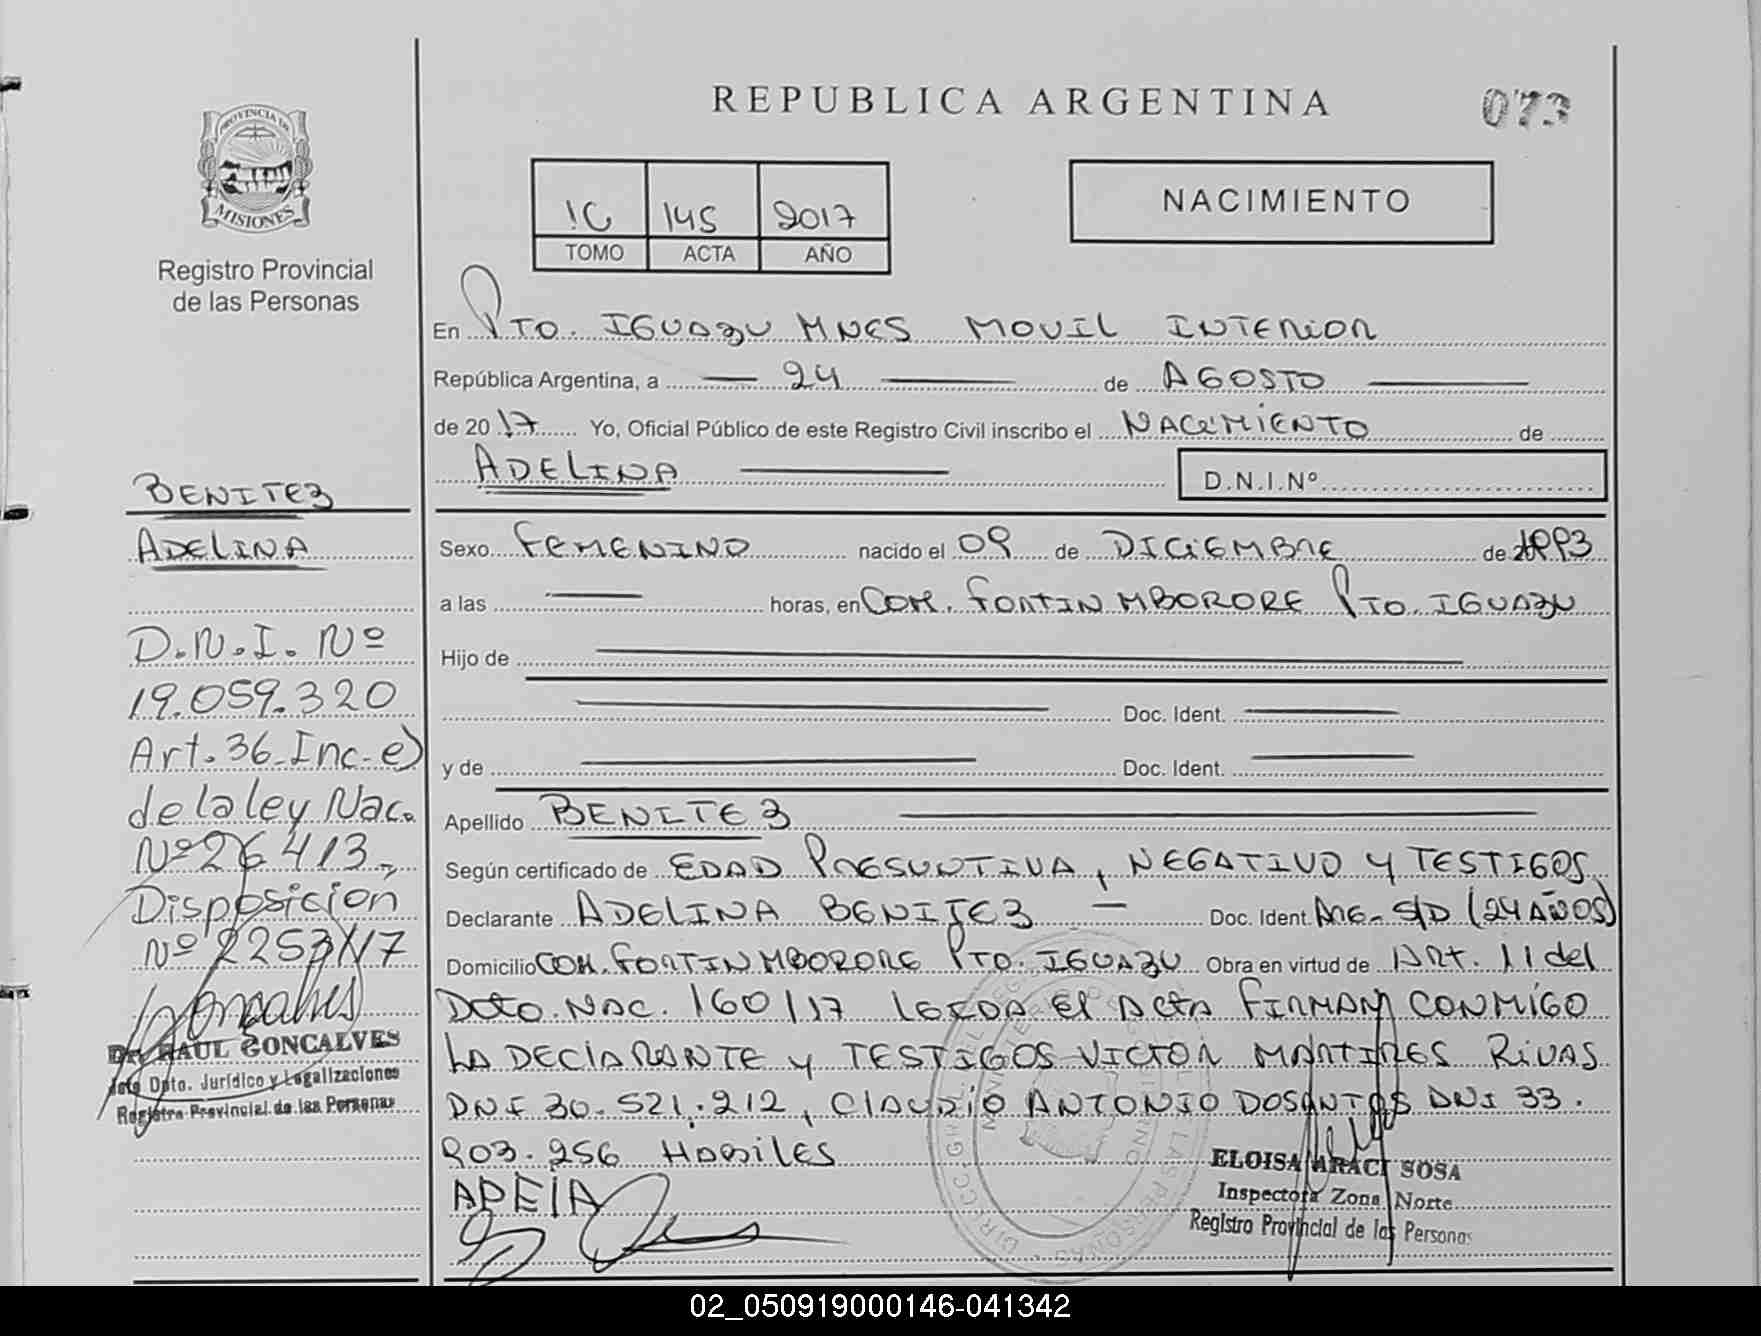 REPUBLICA ARGENTINA
073
PROVINCIA DE
MISIONES
Registro Provincial
de las Personas
1C 145 2017
TOMO ACTA AÑO
NACIMIENTO
En PTO. IGUAZU MNES MOVIL INTERIOR
República Argentina, a 24 de AGOSTO
de 2017 Yo, Oficial Público de este Registro Civil inscribo el NACIMIENTO de
ADELINA
D.N.I.Nº
Sexo FEMENINO nacido el 09 de DICIEMBRE de 1993
a las horas, en COM. FORTIN MBORORE PTO. IGUAZU
Hijo de
Doc. Ident.
y de Doc. Ident.
Apellido BENITEZ
Según certificado de EDAD PRESUNTIVA, NEGATIVO Y TESTIGOS
Declarante ADELINA BENITEZ Doc. Ident. ARG. S/D (24 AÑOS)
Domicilio COM. FORTIN MBORORE PTO. IGUAZU Obra en virtud de ART. 11 del
Dcto. NAC. 160/17 LEIDA El ActA FIRMAN CONMIGO
LA DECLARANTE Y TESTIGOS VICTOR MARTIRES RIVAS
DNI 30.521.212, CLAUDIO ANTONIO DOSANTOS DNI 33.
903.256 HABILES
ELOISA ARACI SOSA
Inspectora Zona Norte
Registro Provincial de las Personas
BENITEZ
ADELINA
D.N.I. Nº
19.059.320
Art. 36 Inc. e)
de la ley Nac.
Nº 26413,
Disposición
Nº 2253/17
Dr. RAUL GONCALVES
Jefe Dpto. Jurídico y Legalizaciones
Registro Provincial de las Personas
02_050919000146-041342